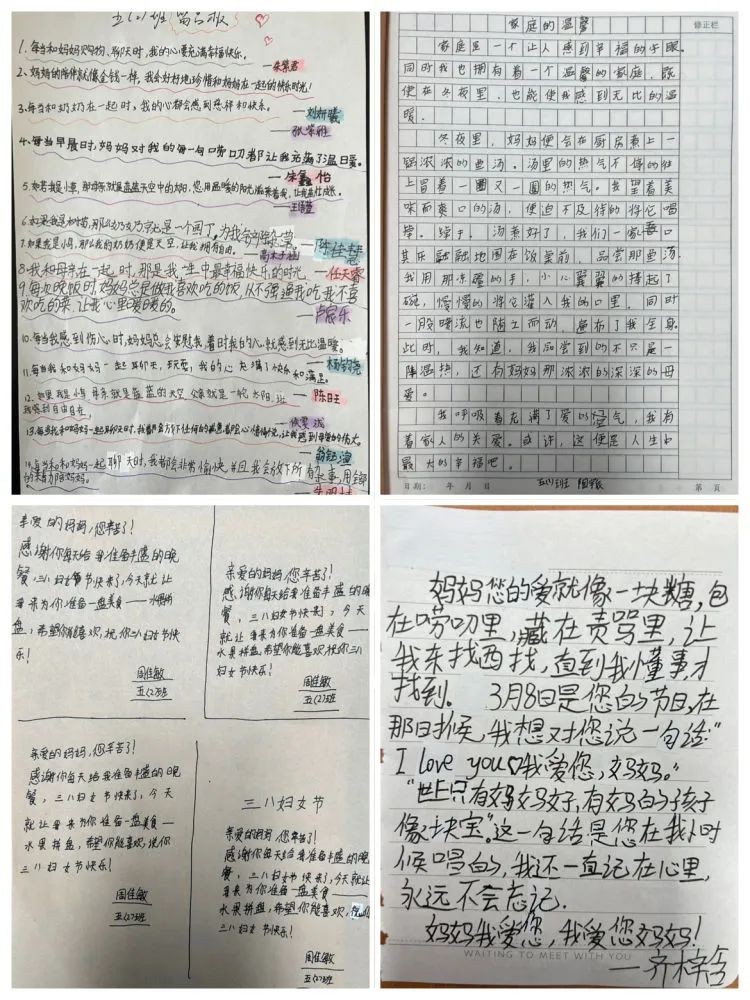 五(2)班 留言板
1、每当和妈妈购物、聊天时,我的心里充满幸福快乐。
2、妈妈的陪伴就像金钱一样,我会好好地珍惜和妈妈在一起的快乐时光!
3、每当和奶奶在一起时,我的心都会感到慈祥和快乐。
刘妍曦
4、每当早晨时,妈妈对我的每一句唠叨都让我充满了温暖。
朱鑫怡
6、如果我是小苗,那么
7、如果我是小鸟,那么我的奶奶便是天空,让我拥有自由。
8、我和母亲在一起时,那是我一生中最幸福快乐的时光。
任天霖
9、每次晚饭时妈妈总是做我喜欢吃的饭,从不强迫我吃我不喜
欢吃的菜,让我心里暖暖的。
卢宸乐
10、每当我感到伤心时,妈妈总会安慰我,着时我的心就感到无比温暖。
11、每当我和妈妈一起聊天,玩耍,我的心充满了快乐和满足。
陈旺
家庭的温馨
修正栏
家庭是一个让人感到幸福的字眼。
同时我也拥有着一个温馨的家庭,既
使在冬夜里,也能使我感到无比的温
暖。
冬夜里,妈妈便会在厨房煮上一
锅浓浓的鱼汤。汤里的热气不停的往
上冒着一圈又一圈的热气。我望着美
味而爽口的汤,便迫不及待的将它喝
。汤煮好了,我们一家
其乐融融地围在饭桌前,品尝那鱼汤
我用那冻僵的手,小心翼翼的捧起了
碗,慢慢的将它灌入我的口里,同时
一股暖流也随之而动,遍布了我全身。
此时,我知道,我品尝到的不只是一
阵温热,还有妈妈那浓浓的深深的母
爱。
我呼吸着充满了爱的空气,我有
着家人的关爱。或许,这便是人生中
最大的幸福吧。
日期: 年 月 日
第 页
亲爱的妈妈,您辛苦了!
感谢你每天给我准备丰盛的晚
餐,三八妇女节快来了,今天就让
我来为你准备一盘美食——水果拼
盘,希望你能喜欢,祝你三八妇女节快
乐!
周佳敏
五(2)班
亲爱的妈妈,您辛苦了!
感谢你每天给我准备丰盛的晚
餐,三八妇女节快来了,今天
就让我来为你准备一盘美食——
水果拼盘,希望你能喜欢,祝你三八
妇女节快乐!
周佳敏
五(2)班
亲爱的妈妈,您辛苦了!
感谢你每天给我准备丰盛的晚
餐,三八妇女节快来了,今天
就让我来为你准备一盘美食——
水果拼盘,希望你能喜欢,祝你
三八妇女节快乐!
周佳敏
五(2)班
三八妇女节
亲爱的妈妈,您辛苦了!
感谢你每天给我准备丰盛的晚
餐,三八妇女节快来了,今天就让
我来为你准备一盘美食——
水果拼盘,希望你能喜欢,祝你
三八妇女节快乐!
周佳敏
五(2)班
妈妈您的爱就像一块糖,包
在唠叨里,藏在责骂里,让
我东找西找,直到我懂事才
找到。 3月8日是您的节日,在
那日时候,我想对您说一句话:“
I love you♡我爱您,妈妈。”
“世上只有妈妈好,有妈妈的孩子
像块宝”。这一句话是您在我小时
候唱的,我还一直记在心里,
永远不会忘记.
妈妈我爱您,我爱您妈妈!
WAITING TO MEET WITH YOU
——齐梓含